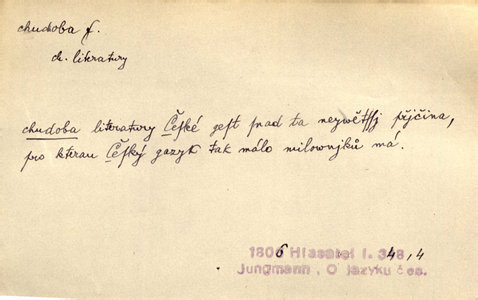 chudoba f.
ch. literatury
chudoba literatury Čeſké geſt ſnad ta neywětſſj přjčina,
pro kterau Čeſký gazyk tak málo milownjků má.
1806 Hlasatel I. 348,4
Jungmann, O jazyku čes.